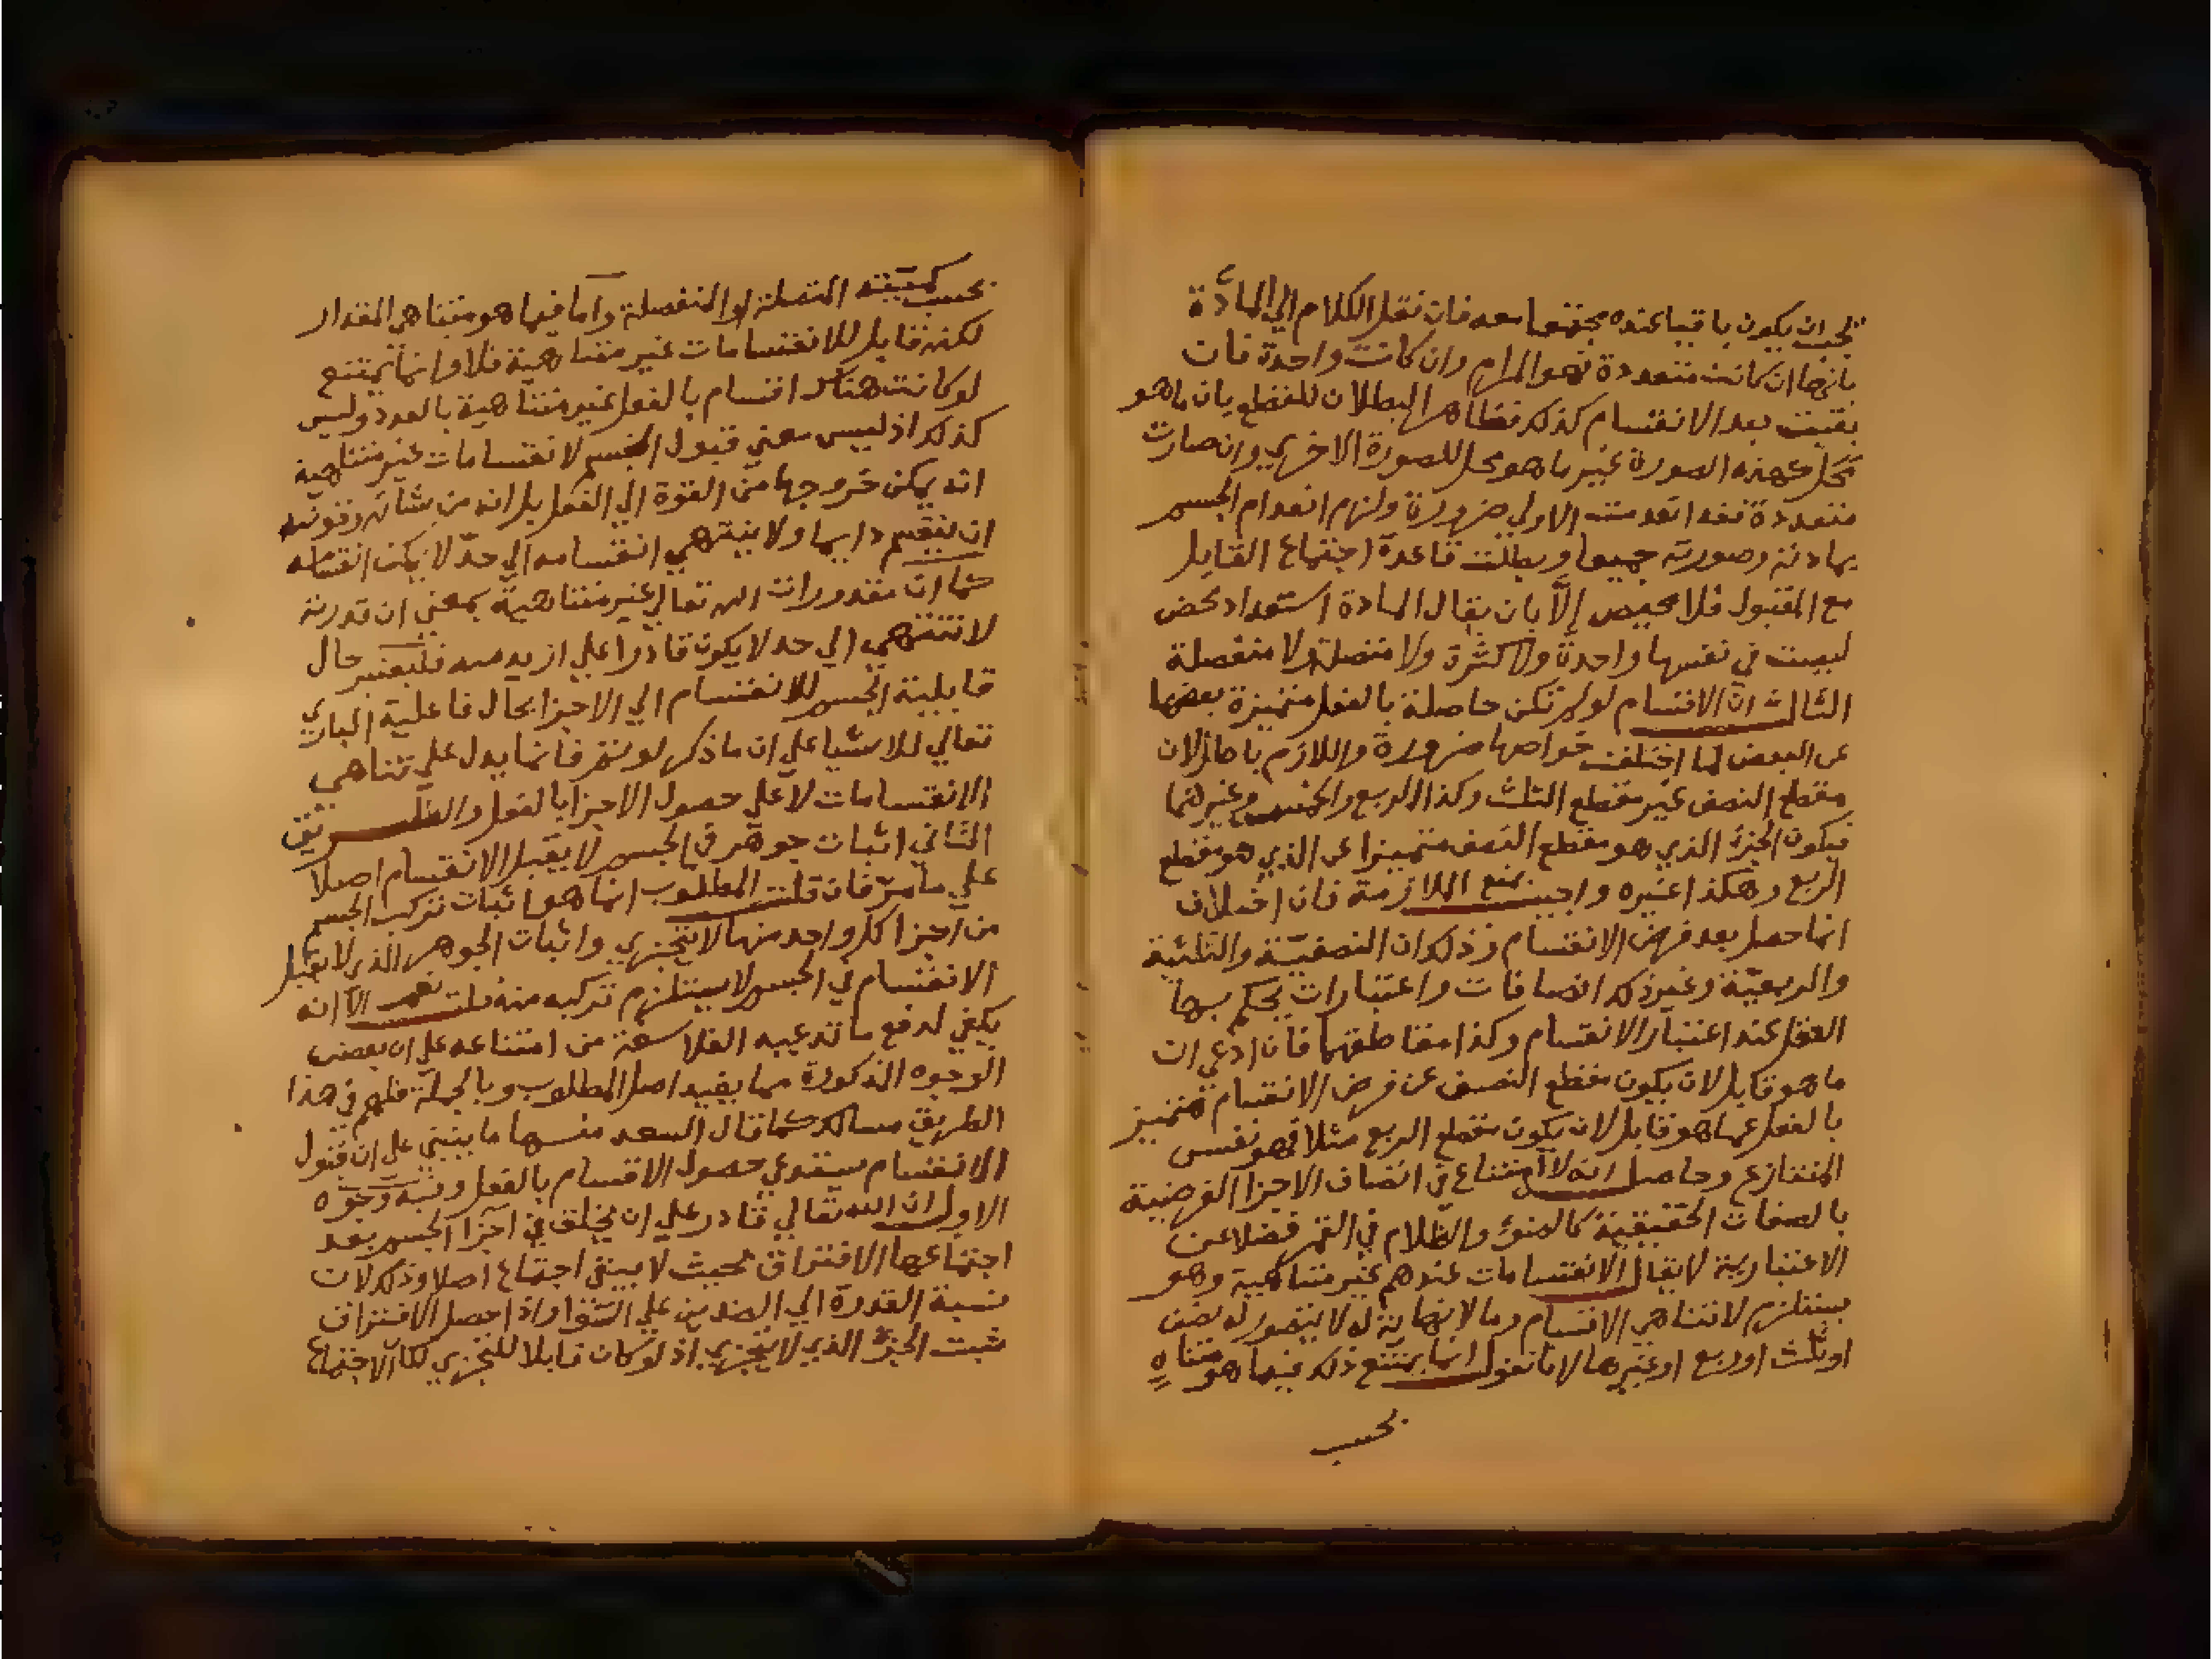 يجب ان يكون باقيا عنده مجتمعا معه فان نقل الكلام الي المادة
بانها ان كانت متعددة فهو المرام وان كانت واحدة فان
بقيت بعد الانقسام كذلك فظاهر البطلان للقطع بان ما هو
محل هذه الصورة غير ما هو محل للصورة الاخري وان صارت
متعددة فقد انعدمت الاولي ضرورة ولزم انعدام الجسم
بمادته وصورته جميعا وبطلت قاعدة اجتماع القابل
مع المقبول فلا محيص إلّا بان يقال المادة استعداد محض
ليست في نفسها واحدة ولا كثرة ولا متصلة ولا منفصلة
الثالث ان الاقسام لو لم تكن حاصلة بالفعل متميزة بعضها
عن البعض لما اختلفت خواصها ضرورة واللازم باطل لان
مقطع النصف غير مقطع الثلث وكذا الربع والخمس وغيرهما
فيكون الجزء الذي هو مقطع النصف متميزا عن الذي هو مقطع
الربع وهكذا غيره واجيب بمنع الملازمة فان اختلاف
انما حصل بعد فرض الانقسام وذلك ان النصفية والثلثية
والربعية وغير ذلك اضافات واعتبارات يحكم بها
العقل عند اعتبار الانقسام وكذا مقاطعها فان ادعي ان
ما هو قابل لان يكون مقطع النصف عن فرض الانقسام متميز
بالفعل عما هو قابل لان يكون مقطع الربع مثلا فهو نفس
المتنازع وحاصله انه لا امتناع في اتصاف الاجزا الفرضية
بالصفات الحقيقية كالضوء والظلام في القمر فضلا عن
الاعتبارية لا يقال الانقسامات عندهم غير متناهية وهو
يستلزم لا تناهي الاقسام وما لا نهاية له لا يتصور له نصف
او ثلث او ربع او غيرها لانا نقول انما يمتنع ذلك فيما هو متناه
بحسب
بحسب كميته المتصلة او المنفصلة واما فيما هو متناهي المقدار
لكنه قابل للانقسامات غير متناهية فلا وانما يمتنع
لو كانت هناك اقسام بالفعل غير متناهية بالعدد وليس
كذلك اذ ليس معني قبول الجسم لانقسامات غير متناهية
انه يمكن خروجها من القوة الي الفعل بل انه من شأنه وقوته
ان ينقسم دايما ولا ينتهي انقسامه الي حد لا يمكن انقسامه
كما ان مقدورات الله تعالي غير متناهية بمعني ان قدرته
لا تنتهي الي حد لا يكون قادرا علي ازيد منه فليعتبر حال
قابلية الجسم للانقسام الي الاجزا بحال فاعلية الباري
تعالي للاشيا علي ان ما ذكر لو تم فانما يدل علي تناهي
الانقسامات لا علي حصول الاجزا بالفعل والطريق
الثاني اثبات جوهر في الجسم لا يقبل الانقسام اصلا
علي ما مر فان قلت المطلوب انما هو اثبات تركب الجسم
من اجزا كل واحد منها لا يتجزي واثبات الجوهر الذي لا يقبل
الانقسام في الجسم لا يستلزم تركبه منه قلت نعم الا انه
يكفي لدفع ما تدعيه الفلاسفة من امتناعه علي ان بعض
الوجوه المذكورة مما يفيد اصل المطلوب وبالجملة فلهم في هذا
الطريق مسالك كما قال السعد منها ما يبتني علي ان قبول
الانقسام يستدعي حصول الاقسام بالفعل وفيه وجوه
الاول ان الله تعالي قادر علي ان يخلق في اجزا الجسم بعد
اجتماعها الافتراق بحيث لا يبقي اجتماع اصلا وذلك لان
نسبة القدرة الي الضدين علي السوا واذا حصل الافتراق
ثبت الجزء الذي لا يتجزي اذ لو كان قابلا للتجزي لكان الاجتماع